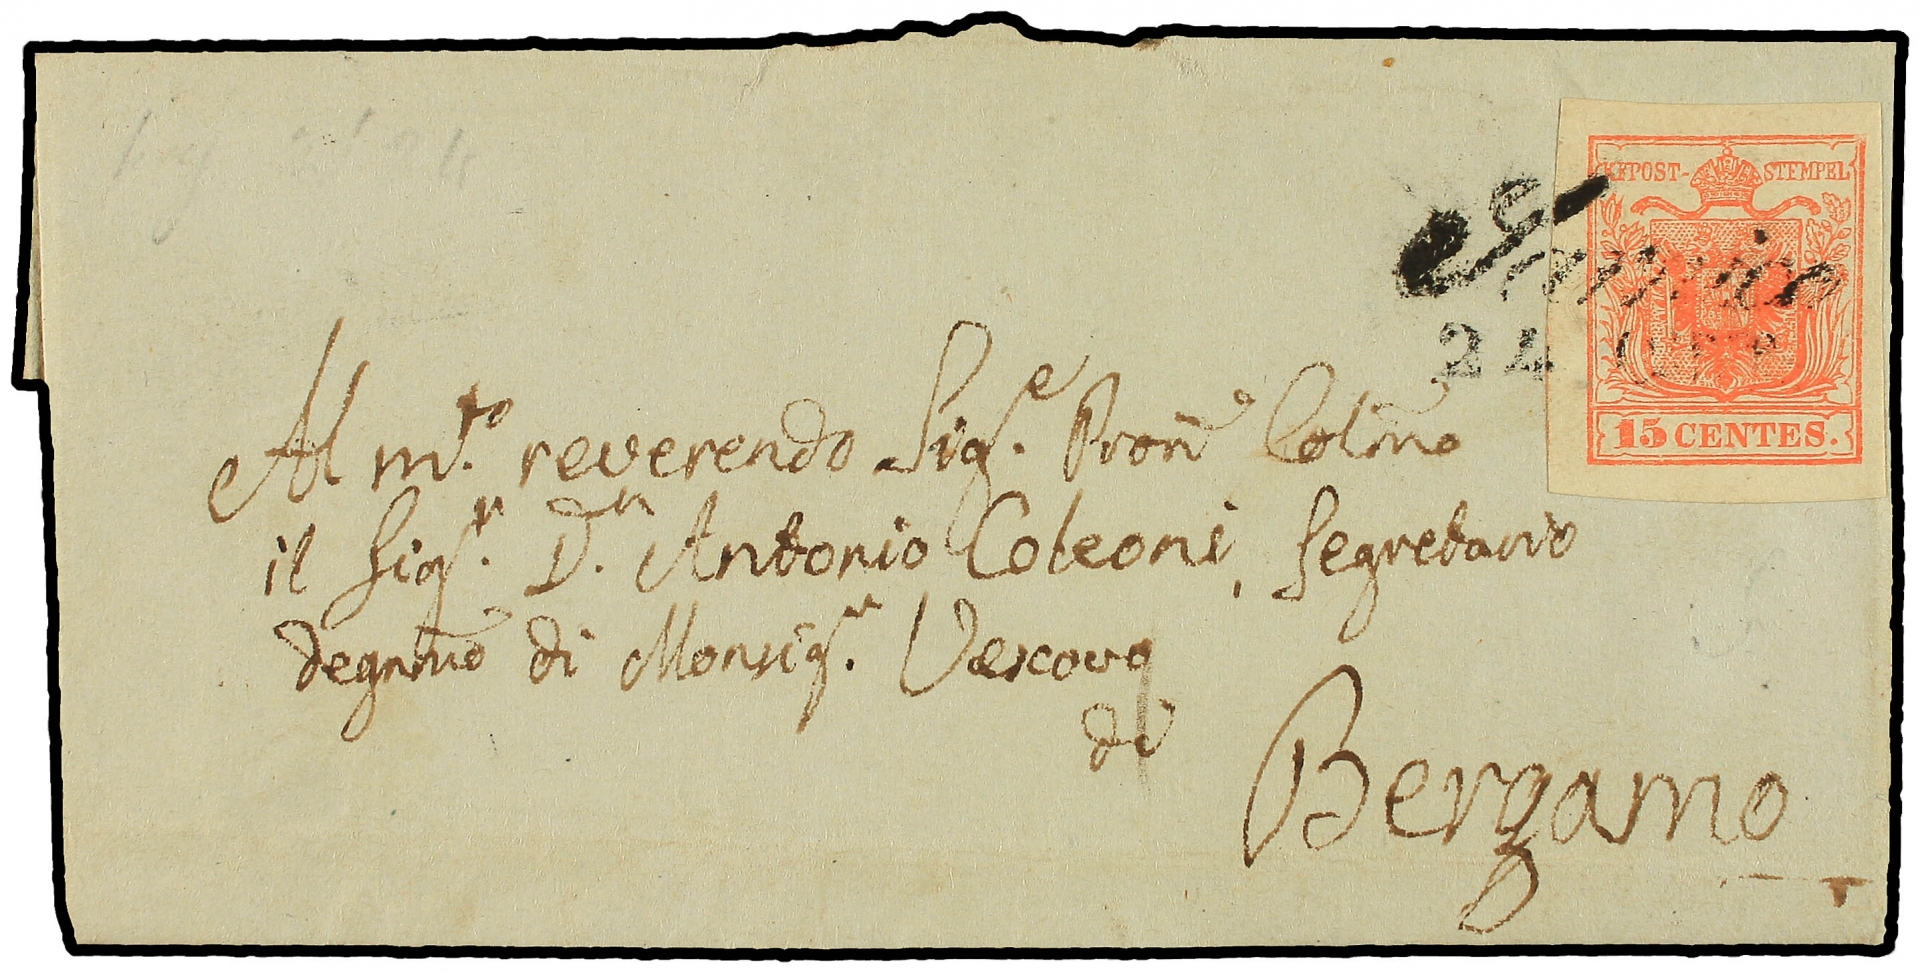 KKPOST-STEMPEL
24
15 CENTES.
Al m.to reverendo Sig.e Pron Colmo
il Sig.r D.n Antonio Coleoni, Segretario
degnmo di Monsig.r Vescovo
di
Bergamo